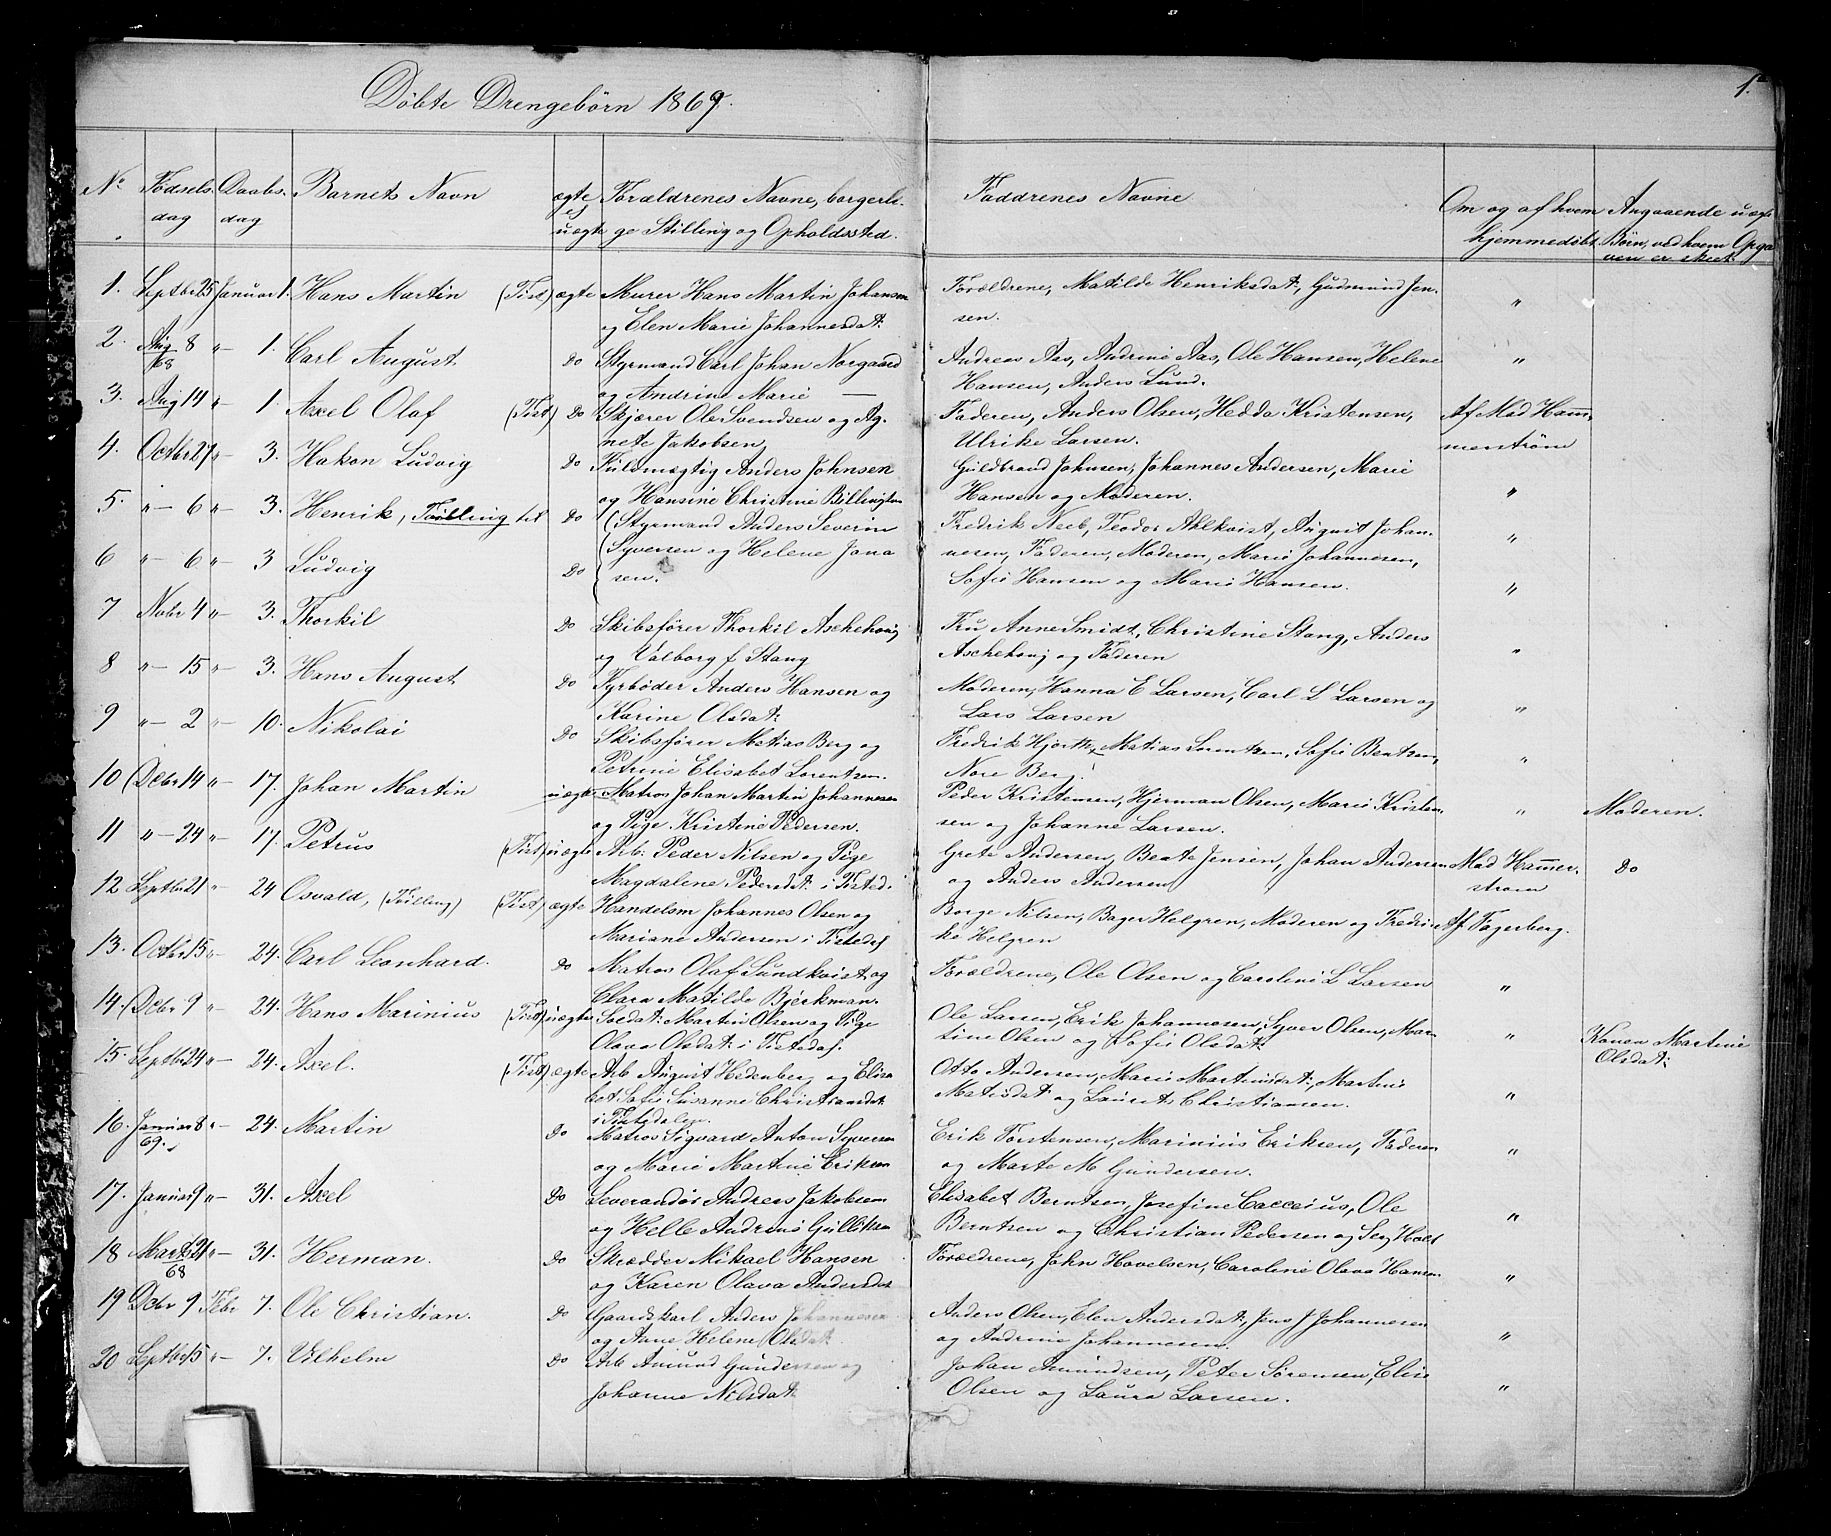 Döbte Drengebörn 1869.
1.
No Födsels- dag Daabs- dag Barnets Navn ægte el uægte Forældrenes Navne, borgerli- ge Stilling og Opholdssted. Faddrenes Navne Om og af hvem hjemmedöbt. Angaaende uægte Börn, ved hvem Opga- ven er skeet.
1. Septbr 25 Januar 1. Hans Martin (Tist) ægte Murer Hans Martin Johansen Forældrene, Matilde Henriksdat:, Gudmund Jen- "
og Elen Marie Johannesdat: sen.
2. Aug 8 "- 1. Carl August Do Styrmand Carl Johan Norgaard Andreas Aas, Andrine Aas, Ole Hansen, Helene "
68 og Andrine Marie — Hansen, Anders Lund.
3. Aug 14 "- 1. Axel Olaf (Tist) Do Skjærer Ole Svendsen og Ag- Faderen, Anders Olsen, Hedda Kristensen, Af Mad Ham-
nete Jakobsen, Ulrike Larsen. merström
4. Octbr 27 "- 3. Hakon Ludvig Do Fuldmægtig Anders Johnsen Guldbrand Johnsen, Johannes Andersen, Marie
og Hansine Christine Billington Hansen og Moderen. "
5. "- 6 "- 3. Henrik, Tvilling til Do (Styrmand Anders Severin Fredrik Neeb, Teodor Ahlkvist, August Johan- "
6 "- 6 "- 3 Ludvig (Syversen og Helene Jona nesen, Faderen, Moderen, Marie Johannesen,
Do sen. Sofie Hansen og Marie Hansen. "
7 Nobr 4 "- 3. Thorkil Do Skibsförer Thorkil Aschehoug Fru Anne Smidt, Christine Stang, Anders
og Valborg f Stang Aschehoug og Faderen "
8 "- 15 "- 3. Hans August Do Fyrböder Anders Hansen og Moderen, Hanna E Larsen, Carl L Larsen og
Karine Olsdat: Lars Larsen "
9 "- 2 "- 10. Nikolai Do Skibsförer Matias Berg og Fredrik Hjorth, Matias Lorentsen, Sofie Bentsen,
Petrine Elisabet Lorentsen. Nore Berg. "
10 Dcbr 14 "- 17. Johan Martin uægte Matros Johan Martin Johannesen Peder Kristensen, Hjerman Olsen, Marie Kristen- " Moderen.
og Pige Kristine Pedersen. sen og Johanne Larsen.
11 "- 24 "- 17. Petrus (Tist) uægte Arb: Peder Nilsen og Pige Grete Andersen, Beate Jensen, Johan Andersen Mad Hammer- Do
Magdalene Pedersdat: i Tisted. og Anders Andersen ström
12 Septbr 21 "- 24 Osvald, (Tvilling) (Tist) ægte Handelsm Johannes Olsen og Borge Nilsen, Bager Helgren, Moderen og Fredri- Af Fagerberg.
Mariane Andersen i Tistedaf ke Helgren
13. Octbr 15 "- 24. Carl Leonhard. Do Matros Olaf Sundkvist og Forældrene, Ole Olsen og Caroline L Larsen
Clara Matilde Bjerkman. "
14. Dcbr 9 "- 24. Hans Marinius (Tist) uægte Soldat: Martin Olsen og Pige Ole Larsen, Erik Johannesen, Syver Olsen, Mar- " Konen Martine
Olava Olsdat: i Tistedaf. tine Olsen og Sofie Olsdat: Olsdat:
15. Septbr 24 "- 24. Axel. (Tist) ægte Arb August Hedenberg og Elisa Otto Andersen, Marie Martinsdat:, Martine
bet Sofie Susanne Christiansdat Matisdat og Laurits Christiansen. "
i Tistedalen.
16. Januar 8 "- 24. Martin Do Matros Sigvard Anton Syversen Erik Torstensen, Marinius Eriksen, Faderen "
69. og Marie Martine Eriksen og Marte M Gundersen.
17. Januar 9 "- 31. Axel Do Leverandör Andreas Jakobsen Elisabet Berntsen, Josefine Coccesius, Ole "
og Helle Andrine Gulliksen Berntsen og Christian Pedersen og Serg Holst
18 Marts 21 "- 31. Herman. Do Skrædder Mikael Hansen Forældrene, John Hovelsen, Caroline Olava Hansen "
68 og Karen Olava Andersdat
19 Dcbr 9 Febr 7. Ole Christian. Do Gaardskarl Anders Johannesen Anders Olsen, Elen Andersdat:, Jens J Johannesen
og Anne Helene Olsdat. og Andrine Johannesen. "
20 Septbr 15 "- 7. Vilhelm Do Arb Amund Gundersen og Johan Amundsen, Peter Sörensen, Elise
Johanne Nilsdat: Olsen og Laura Larsen. "